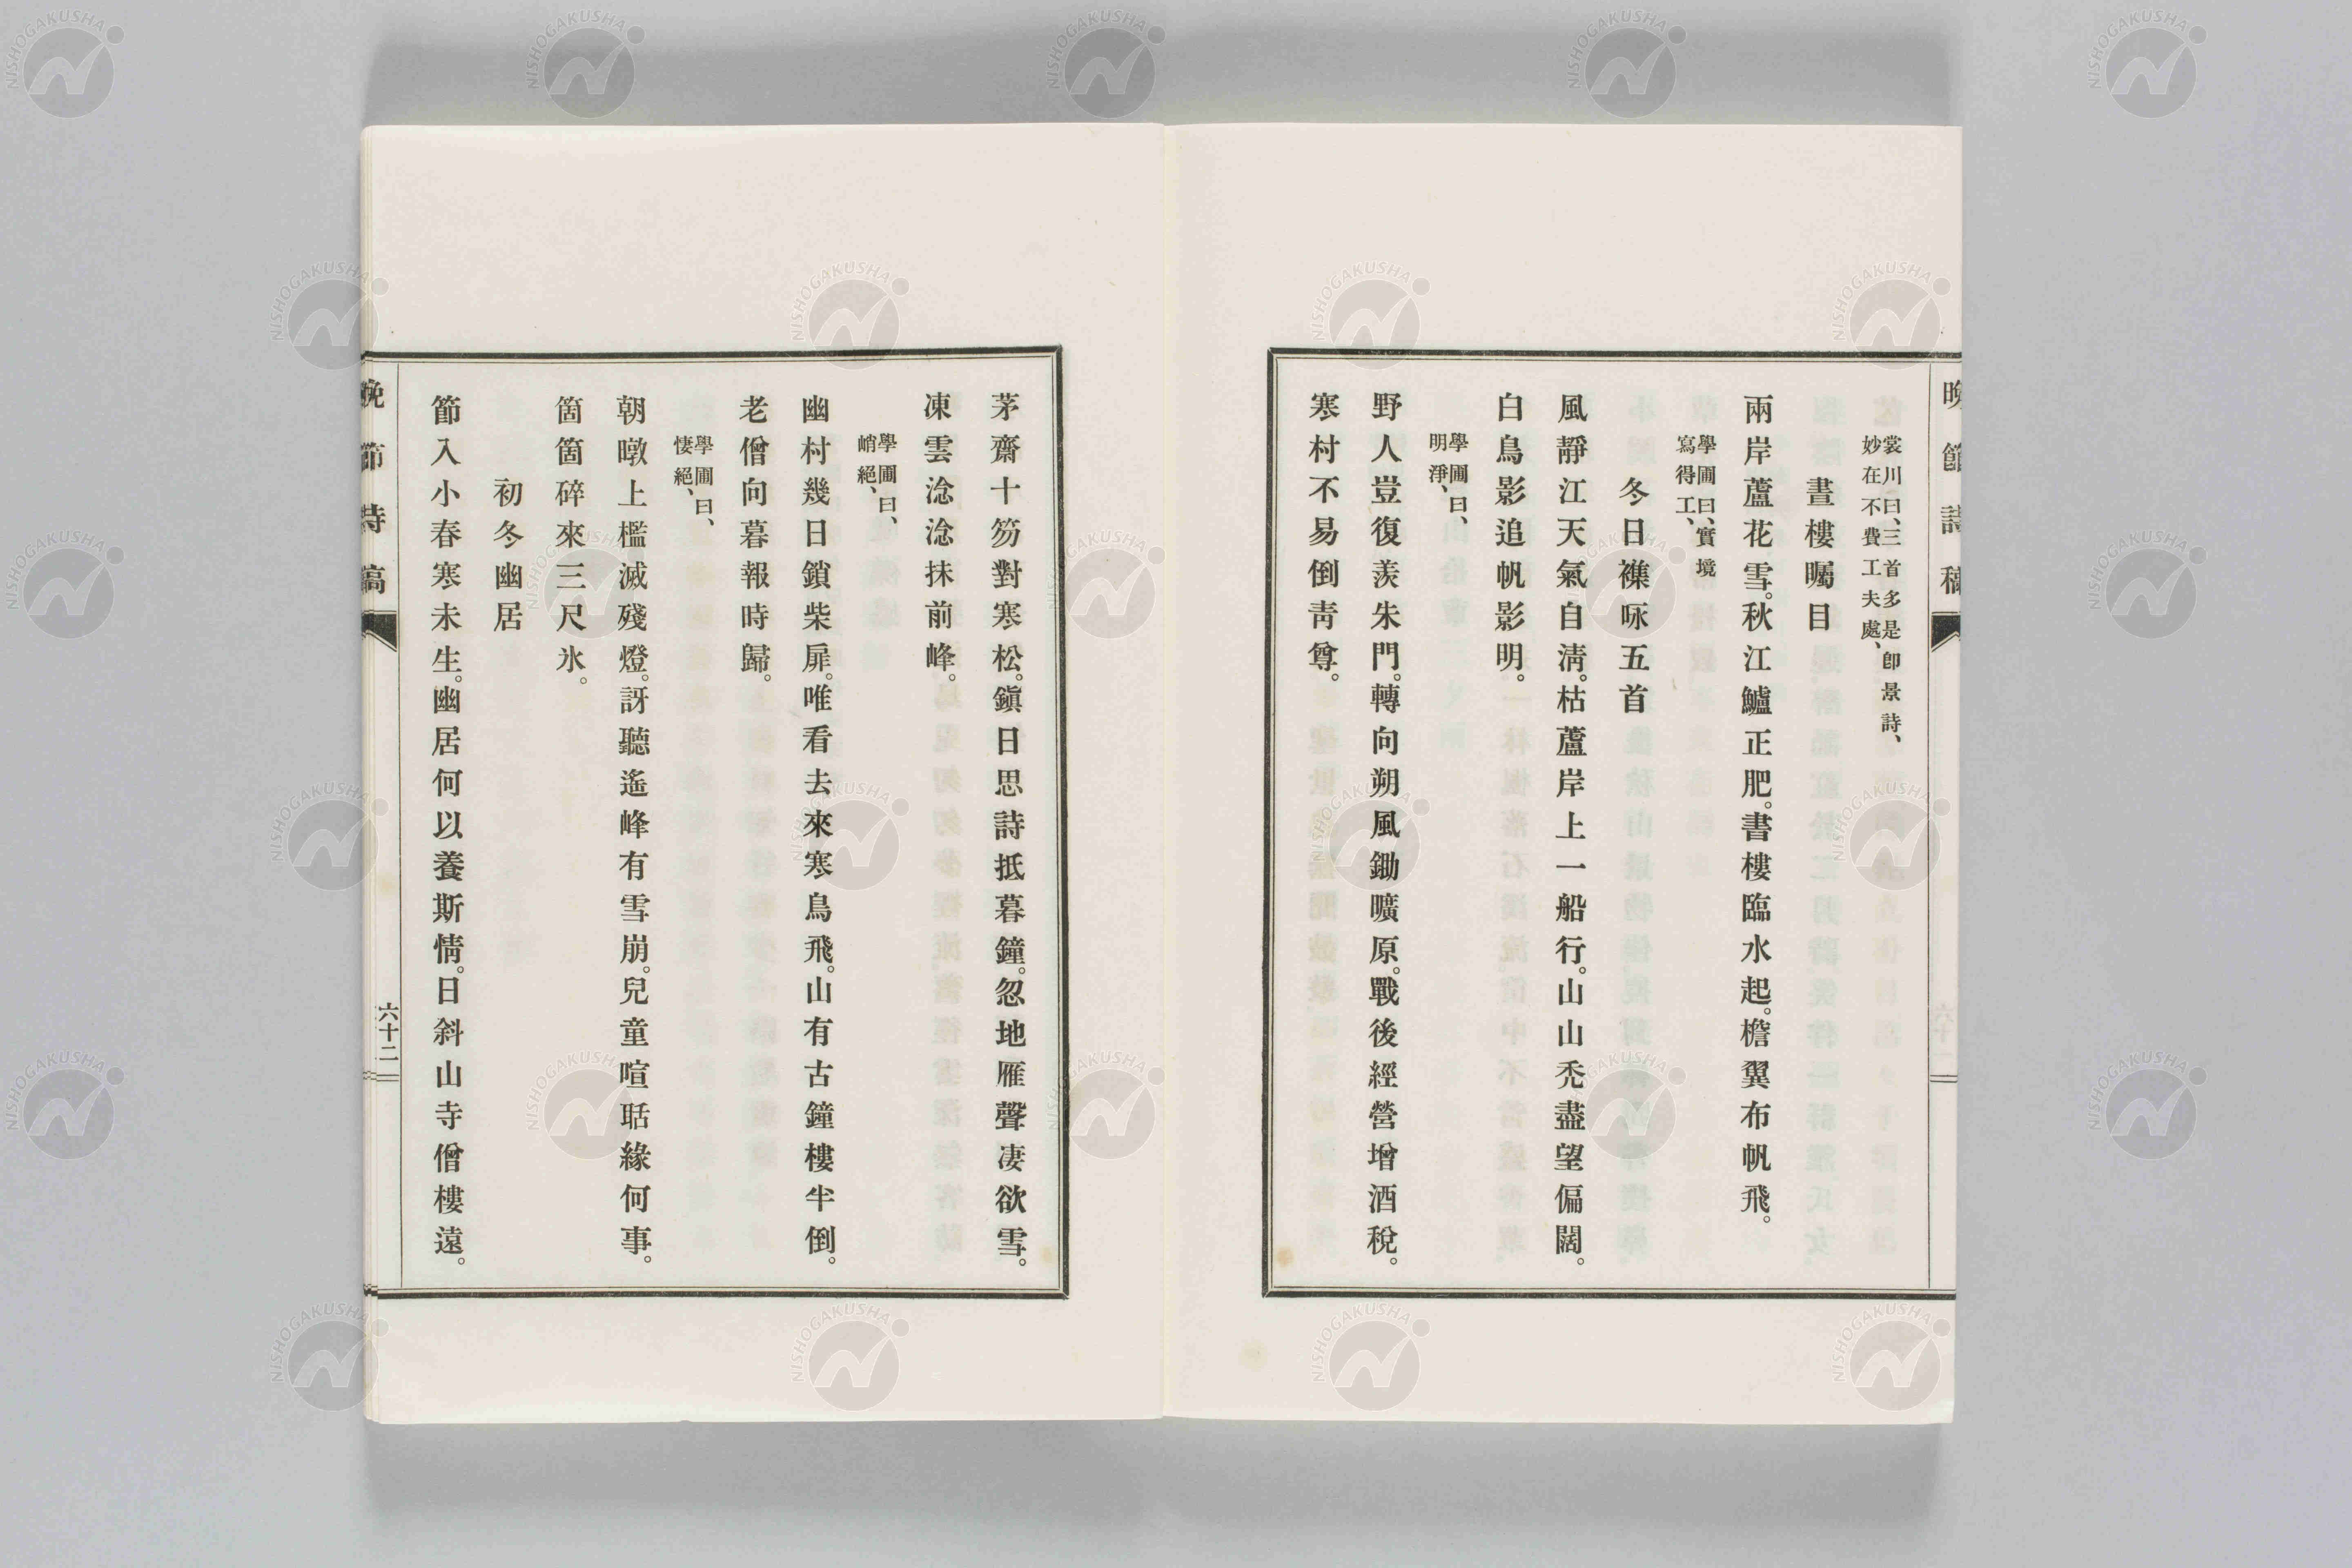 晚節詩稿
裳川曰、三首多是卽景詩、
妙在不費工夫處、
晝樓矚目
兩岸蘆花雪。秋江鱸正肥。書樓臨水起。檐翼布帆飛。
學圃曰、實境
寫得工、
冬日襍咏五首
風靜江天氣自淸。枯蘆岸上一船行。山山禿盡望偏闊。
白鳥影追帆影明。
學圃曰、
明淨、
野人豈復羨朱門。轉向朔風鋤曠原。戰後經營增酒稅。
寒村不易倒靑尊。
茅齋十笏對寒松。鎭日思詩抵暮鐘。忽地雁聲凄欲雪。
凍雲淰淰抹前峰。
學圃曰、
峭絕、
幽村幾日鎖柴扉。唯看去來寒鳥飛。山有古鐘樓半倒。
老僧向暮報時歸。
學圃曰、
悽絕、
朝暾上檻滅殘燈。訝聽遙峰有雪崩。兒童喧聒緣何事。
箇箇碎來三尺氷。
初冬幽居
節入小春寒未生。幽居何以養斯情。日斜山寺僧樓遠。
晚節詩稿
六十二
NISHOGAKUSHA